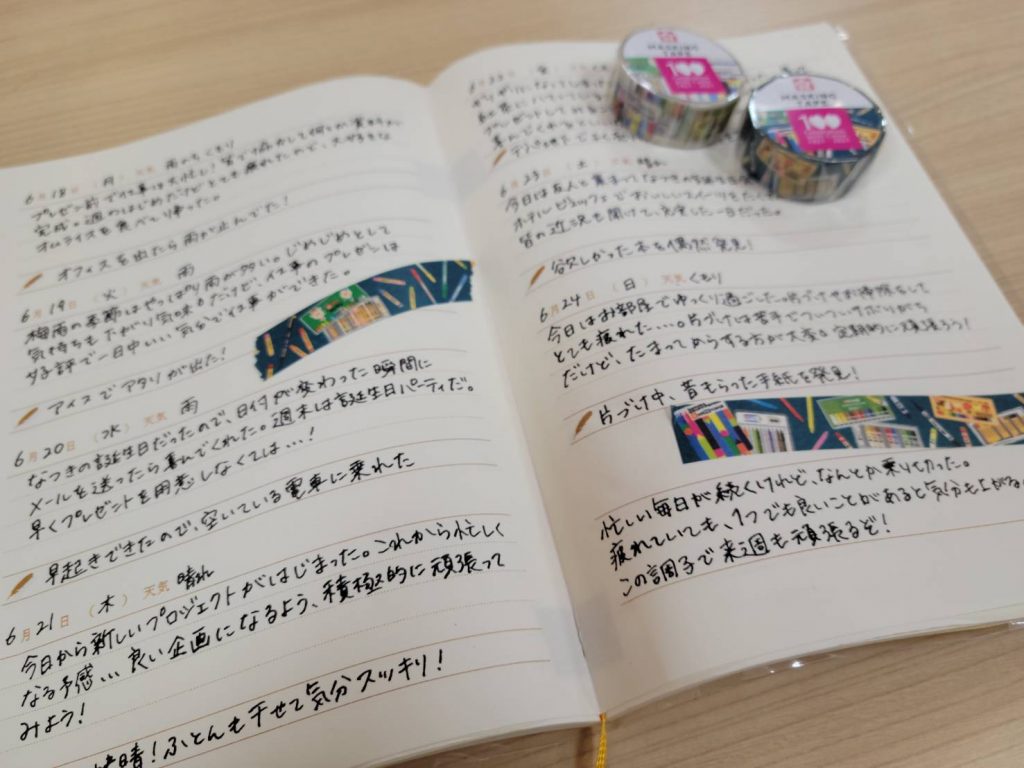 6月18日 (月) 天気 雨のちくもり
プレゼン前で仕事は大忙し!皆で協力して何とか資料が
完成。週のはじめだけどとても疲れたので、大好きな
オムライスを食べて帰った。
オフィスを出たら雨が止んでた!
6月19日 (火) 天気 雨
梅雨の季節はやっぱり雨が多い。じめじめとして
気持ちも下がり気味。だけど、仕事のプレゼンは
好評で一日中いい気分で仕事ができました。
アイスでアタリが出た!
6月20日 (水) 天気 雨
なつきの誕生日だったので、日付が変わった瞬間に
メールを送ったら喜んでくれた。週末は誕生日パーティだ。
早くプレゼントを用意しなくては…!
早起きできたので、空いている電車に乗れた
6月21日 (木) 天気 晴れ
今日から新しいプロジェクトがはじまった。これから忙しく
なる予感…良い企画になるよう、積極的に頑張って
みよう!
晴!ふとんも干せて気分スッキリ!
6月22日 (金)
6月23日 (土) 天気 晴れ
今日は友人と集まってなつきの
ホテルビュッフェでおいしいスイーツをたく
皆の近況も聞けて、充実した一日だった。
欲しかった本を偶然発見!
6月24日 (日) 天気 くもり
今日はお部屋でゆっくり過ごした。片づけやお掃除をして
とても疲れた…。片づけは苦手でついついサボりがち
だけど、たまってからする方が大変。定期的に頑張ろう!
片づけ中、昔もらった手紙を発見!
忙しい毎日が続くけれど、なんとか乗りきった。
疲れていても、1つでも良いことがあると気分も上がる
この調子で来週も頑張るぞ!
MASKING
TAPE
100
MASKING
TAPE
100